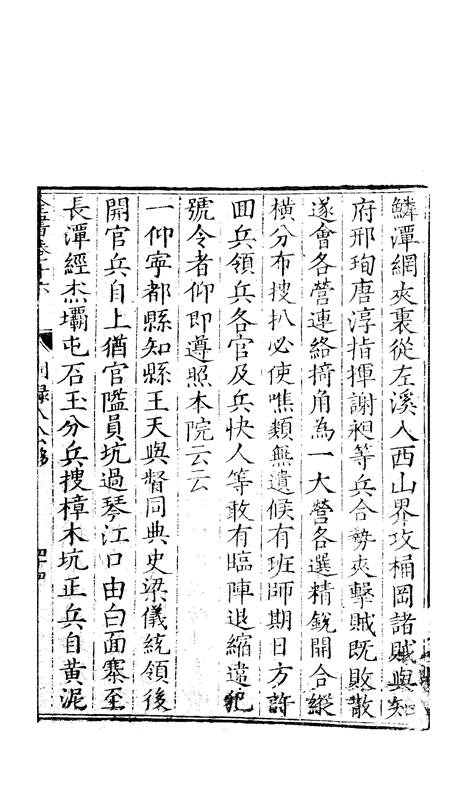 鱗潭網夾裏從左溪入西山界攻桶岡諸賊與知
府邢珣唐淳指揮謝昶等兵合勢夾擊賊既敗散
遂會各營連絡掎角為一大營各選精銳開合縱
橫分布搜扒必使噍類無遺候有班師期日方許
囬兵領兵各官及兵快人等敢有臨陣退縮違犯
號令者仰即遵照本院云云
一仰寧都縣知縣王天與督同典史梁儀統領後
開官兵自上猶官隘員坑過琴江口由白面寨至
長潭經杰壩屯石玉分兵搜樟木坑正兵自黃泥
全書卷十六
別錄八 公移
四十四